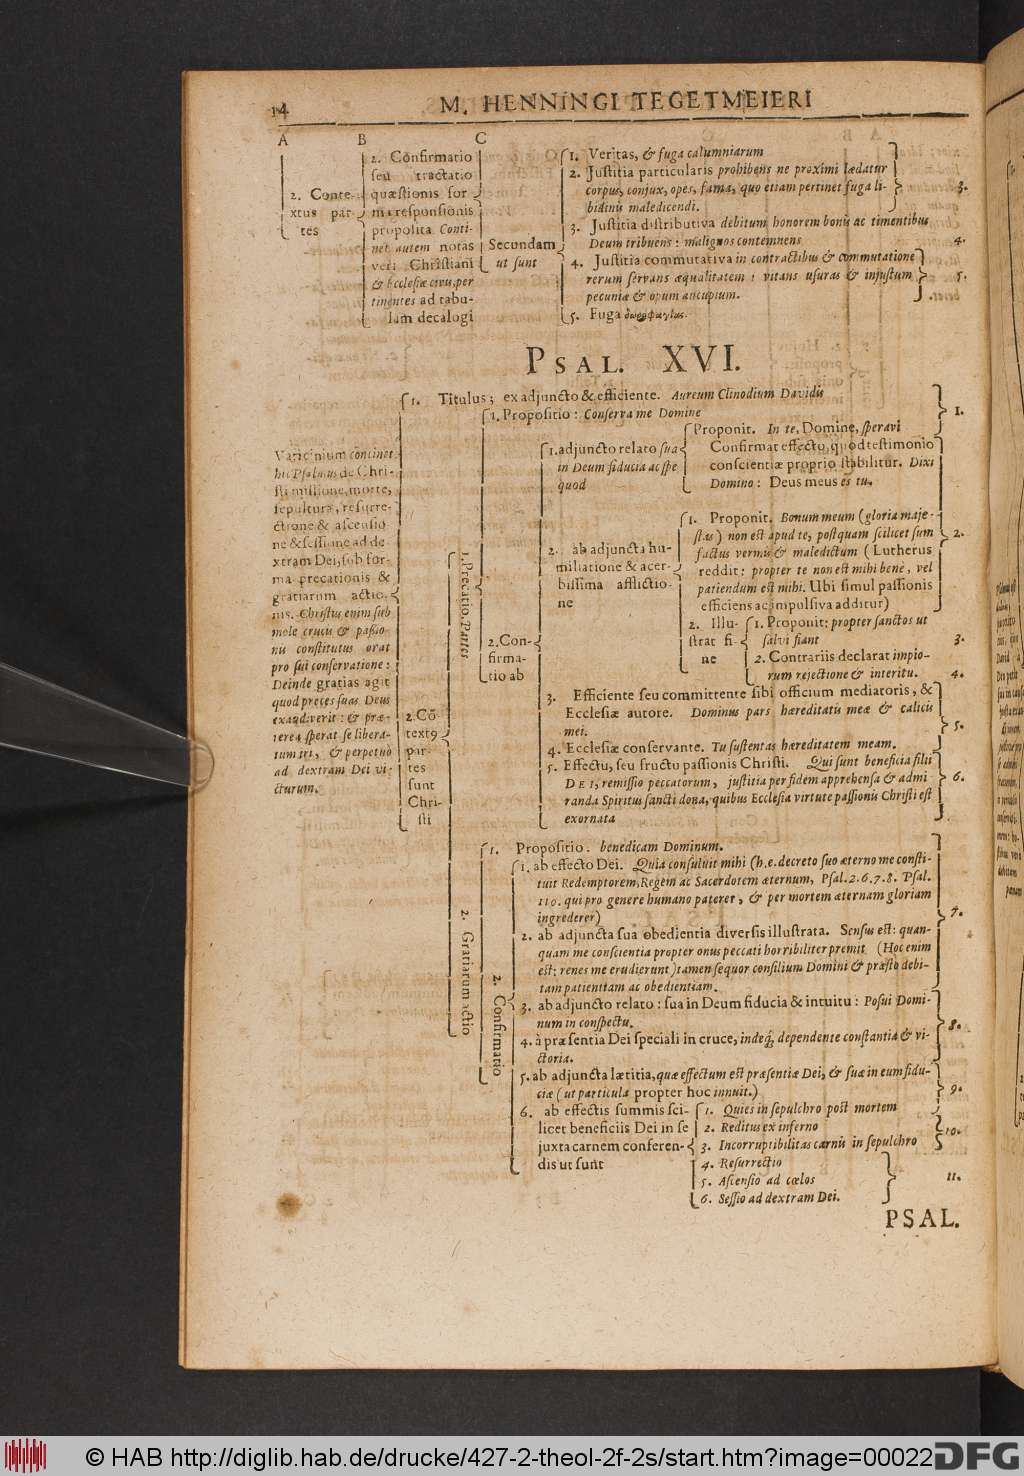 14 M. HENNINGI TEGETMEIERI
A B C
2. Contextus
xtus par-
tes
2. Confirmatio
seu tractatio
quæstionis for
ma responsionis
propolita. Conti-
net autem notas
veri Christiani
& Ecclesiæ civis, per
tinentes ad tabu-
lam decalogi
Secundam
ut sunt
1. Veritas, & fuga calumniarum
2. Justitia particularis prohibens ne proximi lædatur
corpus, conjux, opes, fama, quo etiam pertinet fuga li-
bidinis maledicendi.
3.
3. Justitia distributiva debitum honorem bonis ac timentibus
Deum tribuens: malignos contemnens
4.
4. Justitia commutativa in contractibus & commutatione
rerum servans æqualitatem: vitans usuras & injustum
pecuniæ & opum aucupium.
5.
5. Fuga
PSAL. XVI.
Vaticinium continet
hic Psalmus de Chri-
sti missione, morte,
sepultura, resurre-
ctione & ascensio
ne & sessione ad de-
xtram Dei, sub for-
ma precationis &
gratiarum actio-
nis. Christus enim sub
mole crucis & passio
nis constitutus orat
pro sui conservatione:
Deinde gratias agit
quod preces suas Deus
exaudiverit: & præ-
terea sperat se libera-
tum iri, & perpetuo
ad dextram Dei vi-
cturum.
1. Titulus; ex adjuncto & efficiente. Aureum Clinodium Davidis
1.
2. Cō
textꝰ
par-
tes
sunt
Chri-
sti
1. Precatio. Partes
1. Propositio: Conserva me Domine
2. Con-
firma-
tio ab
1. adjuncto relato sua
in Deum fiducia ac spe
quod
Proponit. In te, Domine, speravi
Confirmat effecto, quod testimonio
conscientiæ proprio stabilitur. Dixi
Domino: Deus meus es tu.
2. ab adjuncta hu-
miliatione & acer-
bissima afflictio-
ne
1. Proponit. Bonum meum (gloria maje-
stas) non est apud te, postquam scilicet sum
2.
factus vermis & maledictum (Lutherus
reddit: propter te non est mihi bene, vel
patiendum est mihi. Ubi simul passionis
efficiens ac impulsiva additur)
2. Illu-
strat fi-
ne
1. Proponit: propter sanctos ut
salvi fiant
3.
2. Contrariis declarat impio-
rum rejectione & interitu.
4.
3. Efficiente seu committente sibi officium mediatoris, &
Ecclesiæ autore. Dominus pars hæreditatis meæ & calicis
mei.
5.
4. Ecclesiæ conservante. Tu sustentas hæreditatem meam.
5. Effectu, seu fructu passionis Christi. Qui sunt beneficia filii
DEI, remissio peccatorum, justitia per fidem apprehensa & admi
6.
randa Spiritus sancti dona, quibus Ecclesia virtute passionis Christi est
exornata
2. Gratiarum actio
1. Propositio. benedicam Dominum.
2. Confirmatio
1. ab effecto Dei. Quia consuluit mihi (h.e. decreto suo æterno me consti-
tuit Redemptorem, Regem ac Sacerdotem æternum, Psal. 2. 6. 7. 8. Psal.
110. qui pro genere humano pateret, & per mortem æternam gloriam
ingrederer)
7.
2. ab adjuncta sua obedientia diversis illustrata. Sensus est: quan-
quam me conscientia propter onus peccati horribiliter premit (Hoc enim
est: renes me erudierunt) tamen sequor consilium Domini & præsto debi-
tam patientiam ac obedientiam.
3. ab adjuncto relato: sua in Deum fiducia & intuitu: Posui Domi-
num in conspectu.
8.
4. à præsentia Dei speciali in cruce, indeq́; dependente constantia & vi-
ctoria.
5. ab adjuncta lætitia, quæ effectum est præsentiæ Dei, & suæ in eum fidu-
ciæ (ut particula propter hoc innuit.)
9.
6. ab effectis summis sci-
licet beneficiis Dei in se
juxta carnem conferen-
dis ut sunt
1. Quies in sepulchro post mortem
2. Reditus ex inferno
10.
3. Incorruptibilitas carnis in sepulchro
4. Resurrectio
5. Ascensio ad cœlos
11.
6. Sessio ad dextram Dei.
PSAL.
© HAB http://diglib.hab.de/drucke/427-2-theol-2f-2s/start.htm?image=00022
DFG